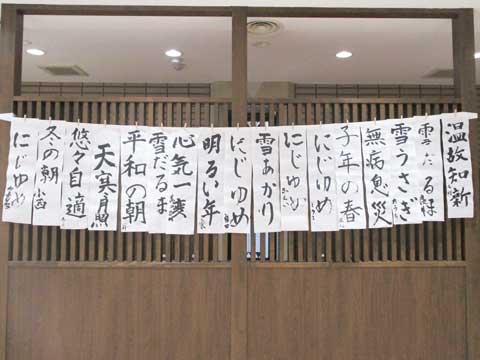 温故知新
雪だる様
雪うさぎ
無病息災
子年の春
にじゆめ
にじゆめ
雪あかり
にじゆめ
明るい年
心気一転
雪だるま
平和の朝
天真
悠々自適
冬の朝
にじゆめ